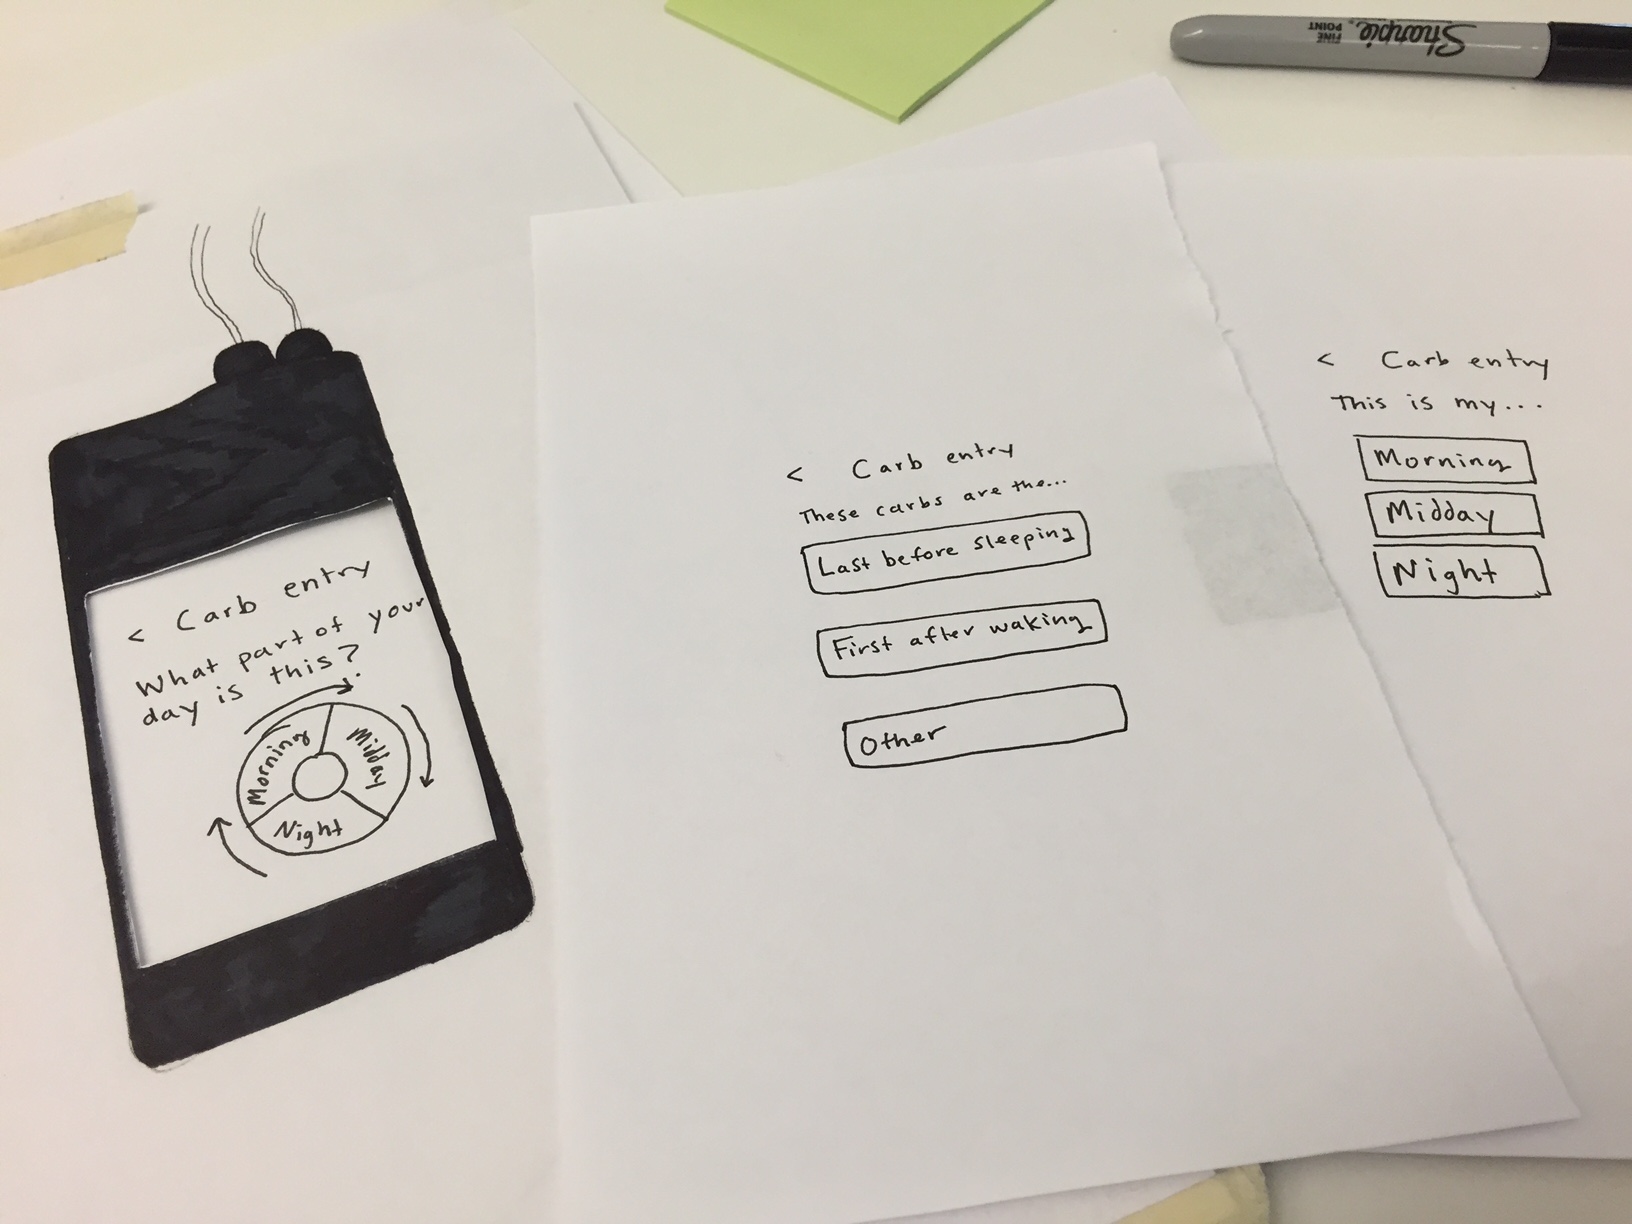 Sharpie
FINE
POINT
< Carb entry
What part of your
day is this?
Morning
Midday
Night
< Carb entry
These carbs are the...
Last before sleeping
First after waking
Other
< Carb entry
This is my...
Morning
Midday
Night